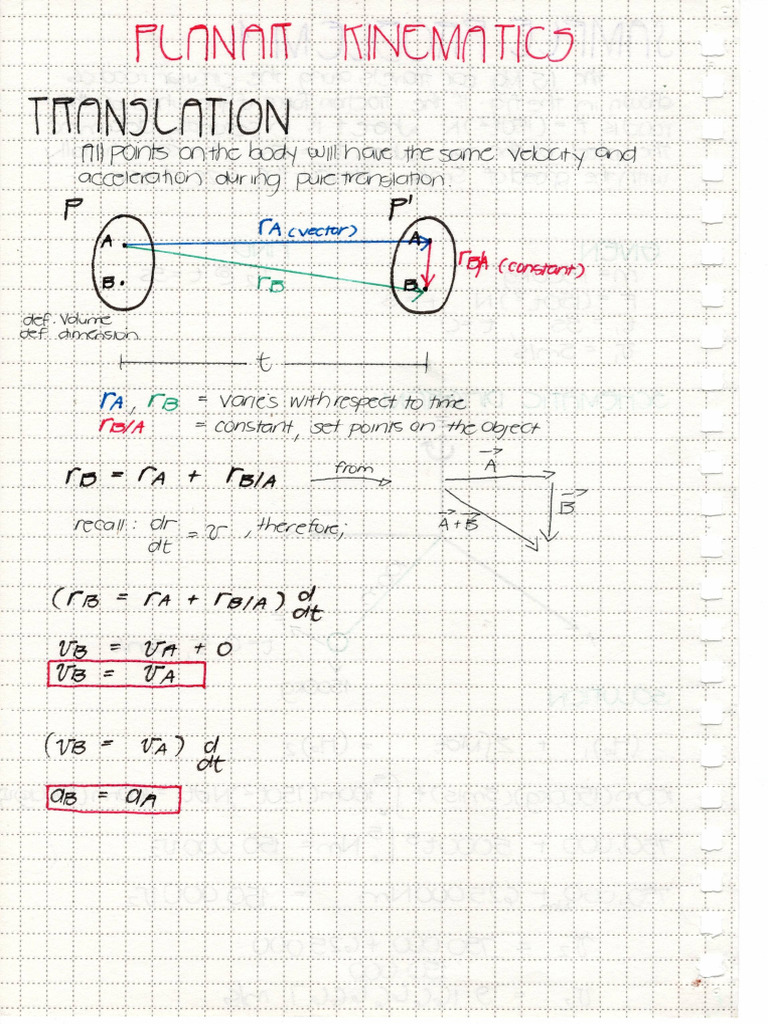 PLANAR KINEMATICS
TRANSLATION
All points on the body will have the same velocity and
acceleration during pure translation.
P P'
A rA (vector) A
B rB B rB/A (constant)
def. volume
def dimension
t
rA, rB = varies with respect to time
rB/A = constant, set points on the object
rB = rA + rB/A from A
A+B B
recall: dr/dt = v, therefore;
(rB = rA + rB/A) d/dt
vB = vA + 0
vB = vA
(vB = vA) d/dt
aB = aA